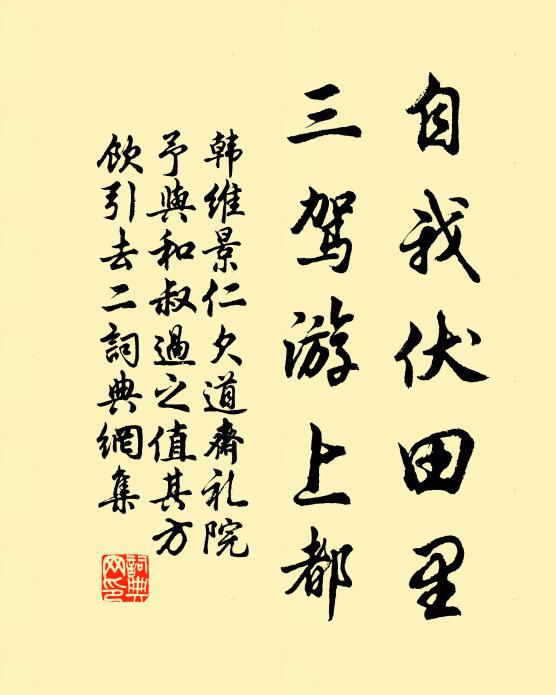 自我伏田里
三驾游上都
韩维景仁久道斋礼院
予與和叔過之值其方
飲引去二詞典網集
詞典网印